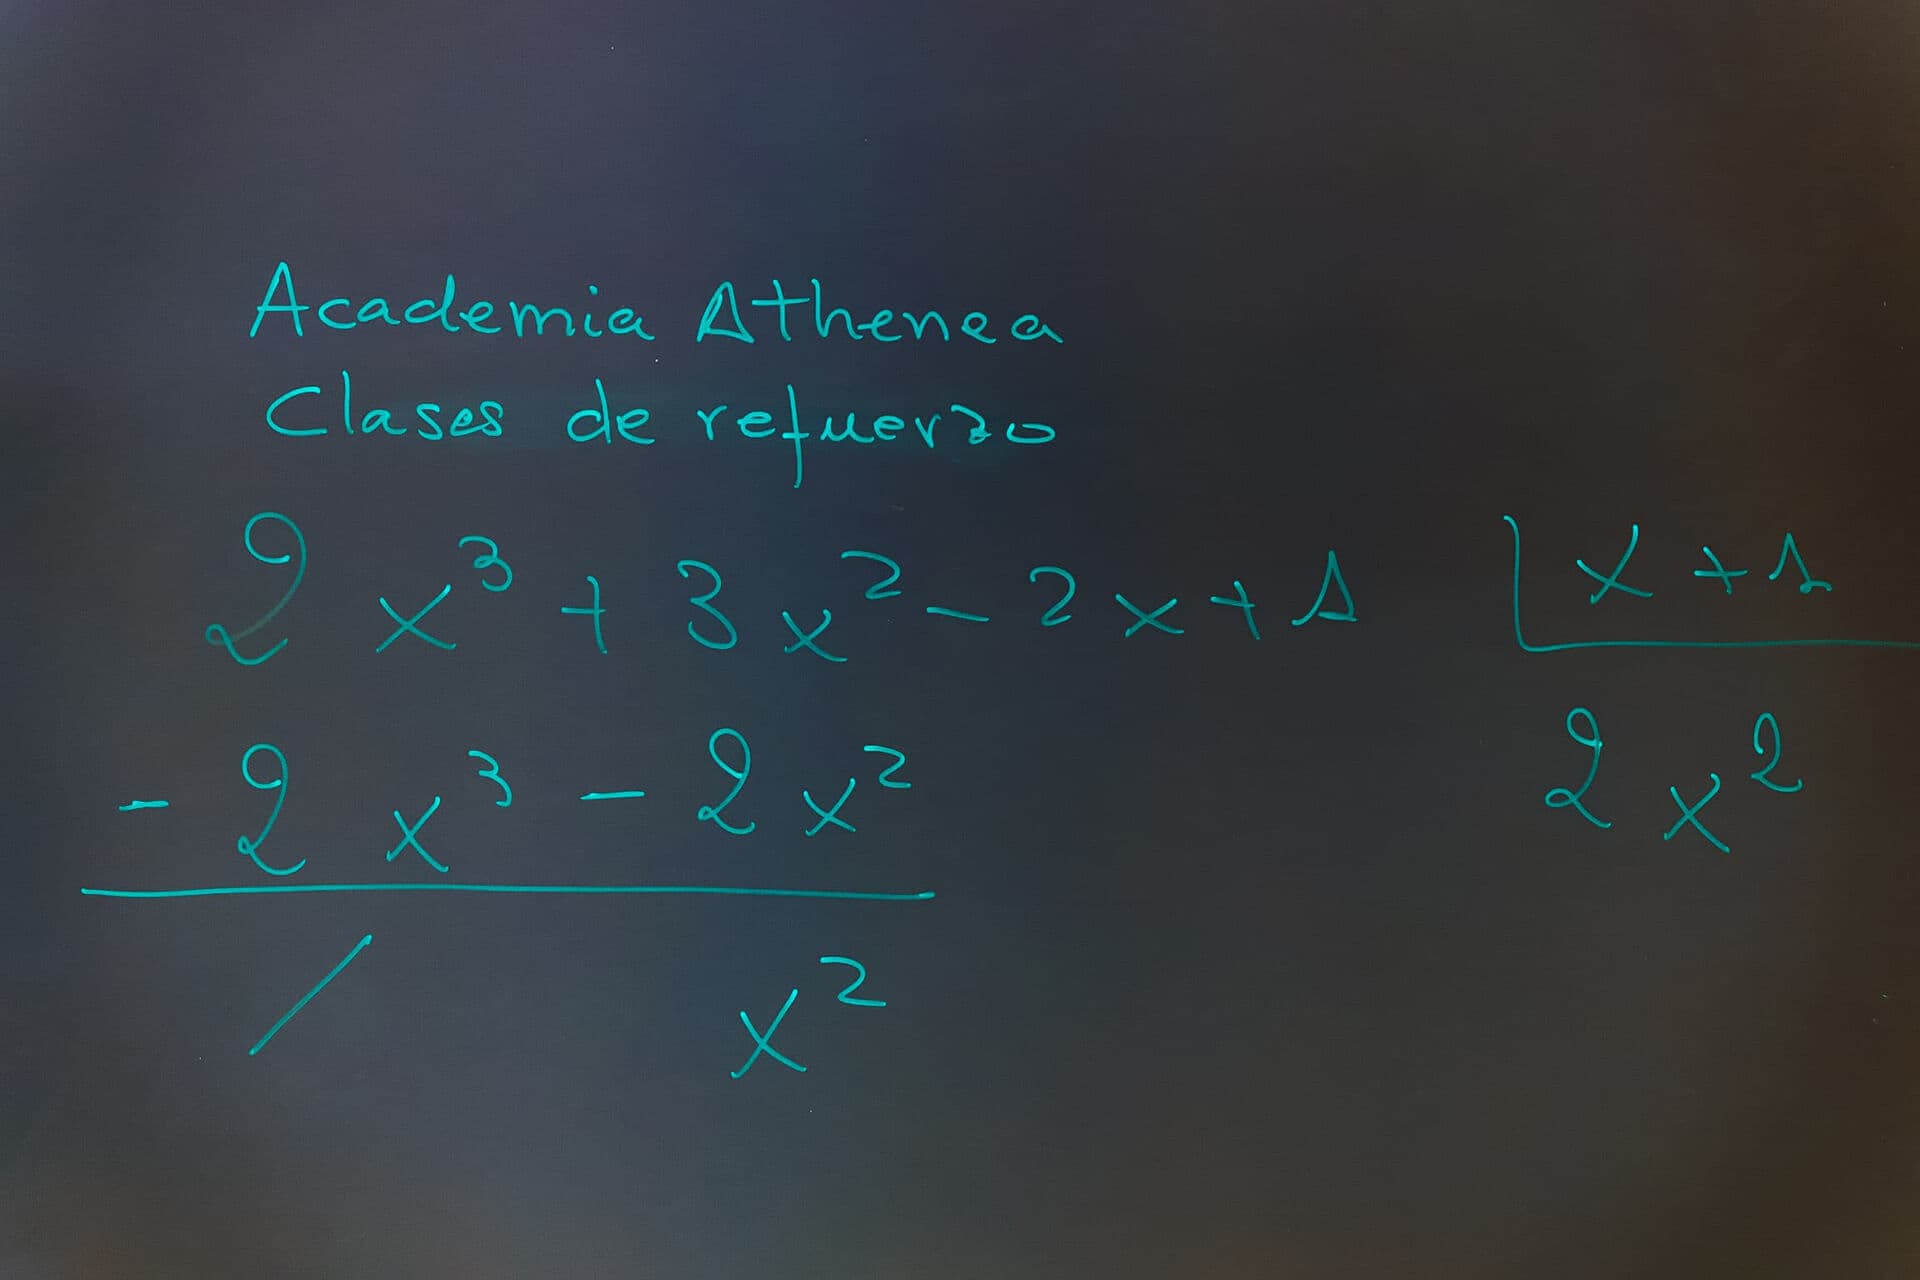 Academia Athenea
Clases de refuerzo
2x³ + 3x² - 2x + 1 | x + 1
- 2x³ - 2x² 2x²
/ x²